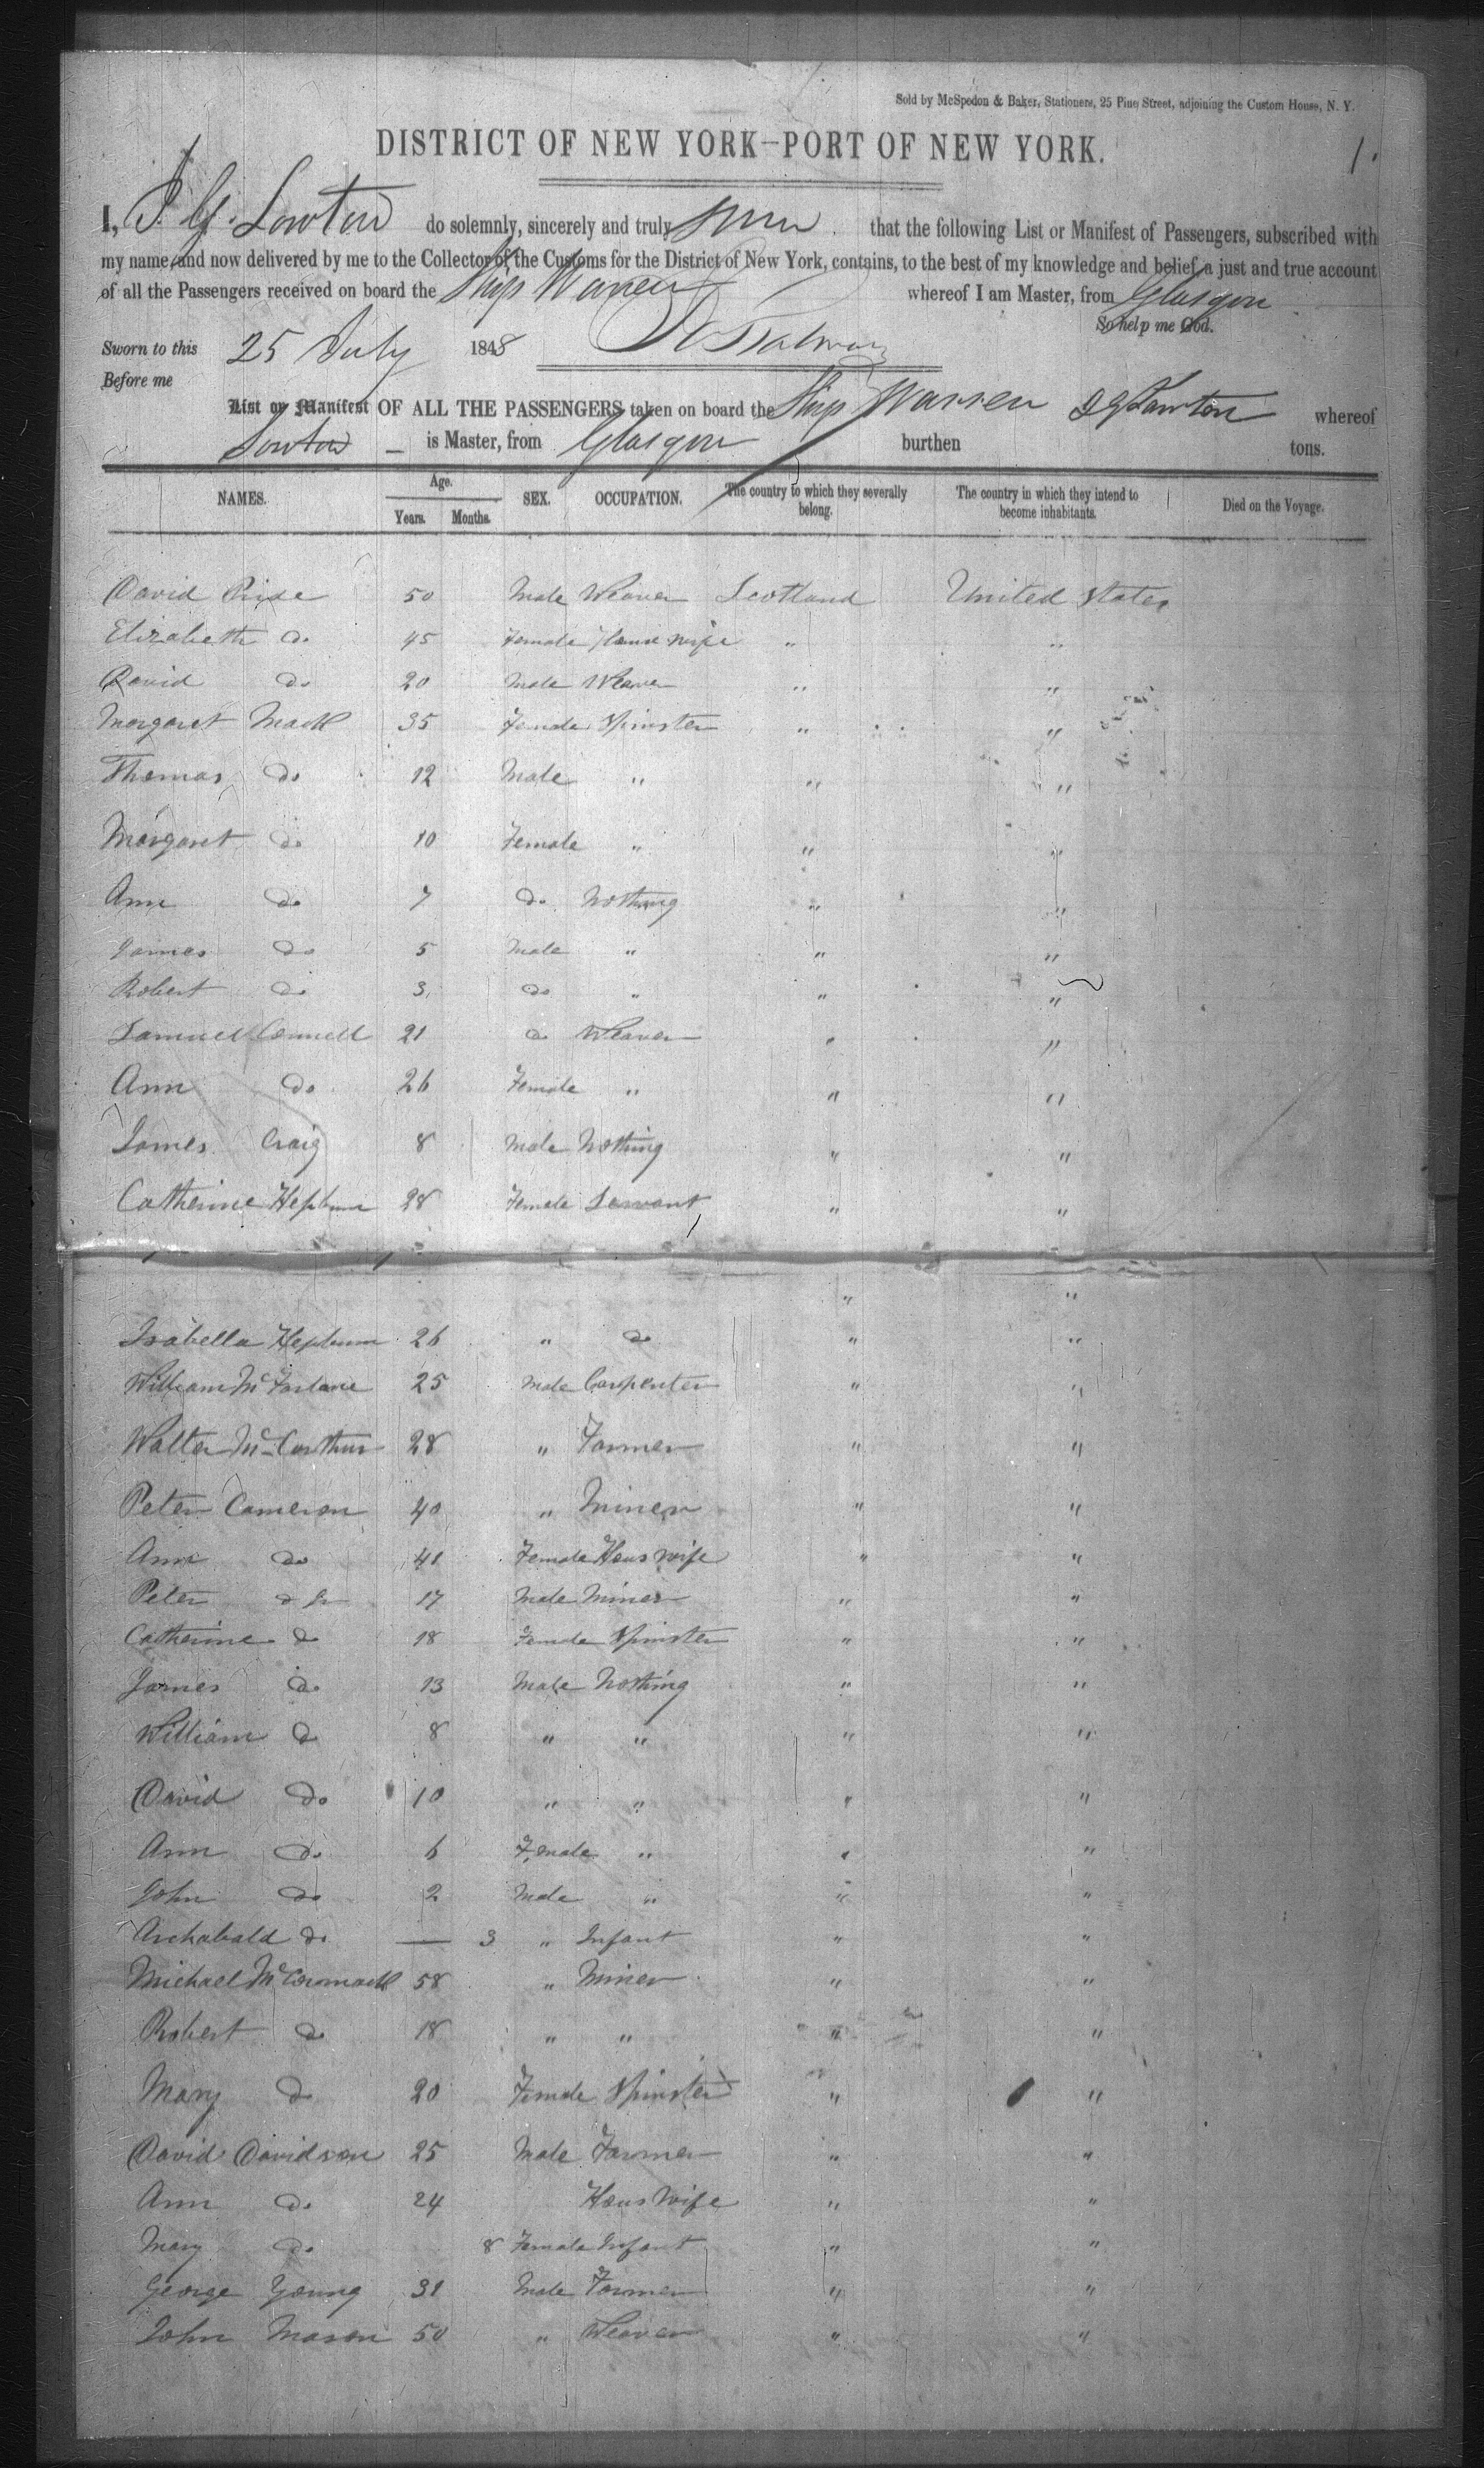 Sold by McSpedon & Baker, Stationers, 25 Pine Street, adjoining the Custom House, N. Y.
DISTRICT OF NEW YORK—PORT OF NEW YORK.
1.
I, J. G. Lawton do solemnly, sincerely and truly that the following List or Manifest of Passengers, subscribed with
my name, and now delivered by me to the Collector of the Customs for the District of New York, contains, to the best of my knowledge and belief, a just and true account
of all the Passengers received on board the Ship Warren whereof I am Master, from Glasgow
So help me God.
Sworn to this 25 July 1848
Before me
List or Manifest OF ALL THE PASSENGERS taken on board the Ship Warren Lawton whereof
Lawton is Master, from Glasgow burthen tons.
NAMES. Age. Years. Months. SEX. OCCUPATION. The country to which they severally belong. The country in which they intend to become inhabitants. Died on the Voyage.
David Pride 50 Male Weaver Scotland United States
Elizabeth do 45 Female House wife " "
David do 20 Male Weaver " "
Margaret Mack 35 Female Spinster " "
Thomas do 12 Male " " "
Margaret do 10 Female " " "
Ann do 7 do Nothing " "
James do 5 Male " " "
Robert do 3 do " " "
Samuel Connell 21 do Weaver " "
Ann do 26 Female " " "
James Craig 8 Male Nothing " "
Catherine Hepburn 28 Female Servant " "
" "
Isabella Hepburn 26 " do " "
William McFarlane 25 Male Carpenter " "
Walter McCarthur 28 " Farmer " "
Peter Cameron 40 " Miner " "
Ann do 41 Female Hous wife " "
Peter do Jr 17 Male Miner " "
Catherine do 18 Female Spinster " "
James do 13 Male Nothing " "
William do 8 " " " "
David do 10 " " " "
Ann do 6 Female " " "
John do 2 Male " " "
Archabald do — 3 " Infant " "
Michael McCormack 58 " Miner " "
Robert do 18 " " " "
Mary do 20 Female Spinster " "
David Davidson 25 Male Farmer " "
Ann do 24 Hous Wife " "
Mary do 8 Female Infant " "
George Young 31 Male Farmer " "
John Mason 50 " Weaver " "